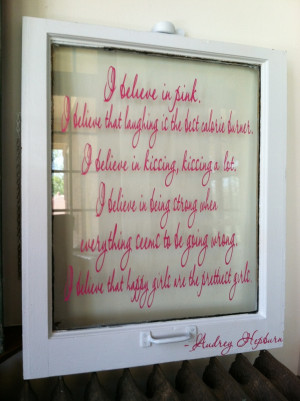 I believe in pink.
I believe that laughing is the best calorie burner.
I believe in kissing, kissing a lot.
I believe in being strong when
everything seems to be going wrong.
I believe that happy girls are the prettiest girls
- Audrey Hepburn